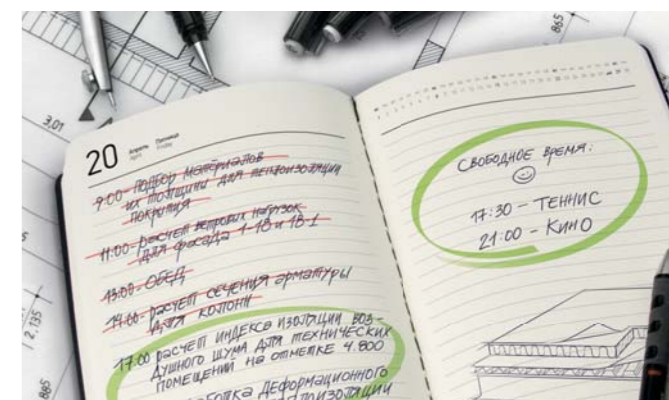 3,01
865
20
Апрель
April
Пятница
Friday
9:00- ПОДБОР МАТЕРИАЛОВ
ИХ ТОЛЩИНИ ДЛЯ ТЕПЛОИЗОЛЯЦИИ
ПОКРЫТИЯ
11:00- РАСЧЕТ ВЕТРОВИХ НАГРУЗОК
ДЛЯ ФАСАДА 1-18 И 18-1
13:00- ОБЕД
14:00- РАСЧЕТ СЕЧЕНИЯ АРМАТУРЫ
ДЛЯ КОЛОНН
17.00 РАСЧЕТ ИНДЕКСА ИЗОЛЯЦИИ ВОЗ-
ДУШНОГО ШУМА ДЛЯ ТЕХНИЧЕСКИХ
ПОМЕЩЕНИЙ НА ОТМЕТКЕ 4.800
ДЕФОРМАЦИОННОГО
СВОБОДНОЕ ВРЕМЯ:
17:30 - ТЕННИС
21:00 - КИНО
2.135
885